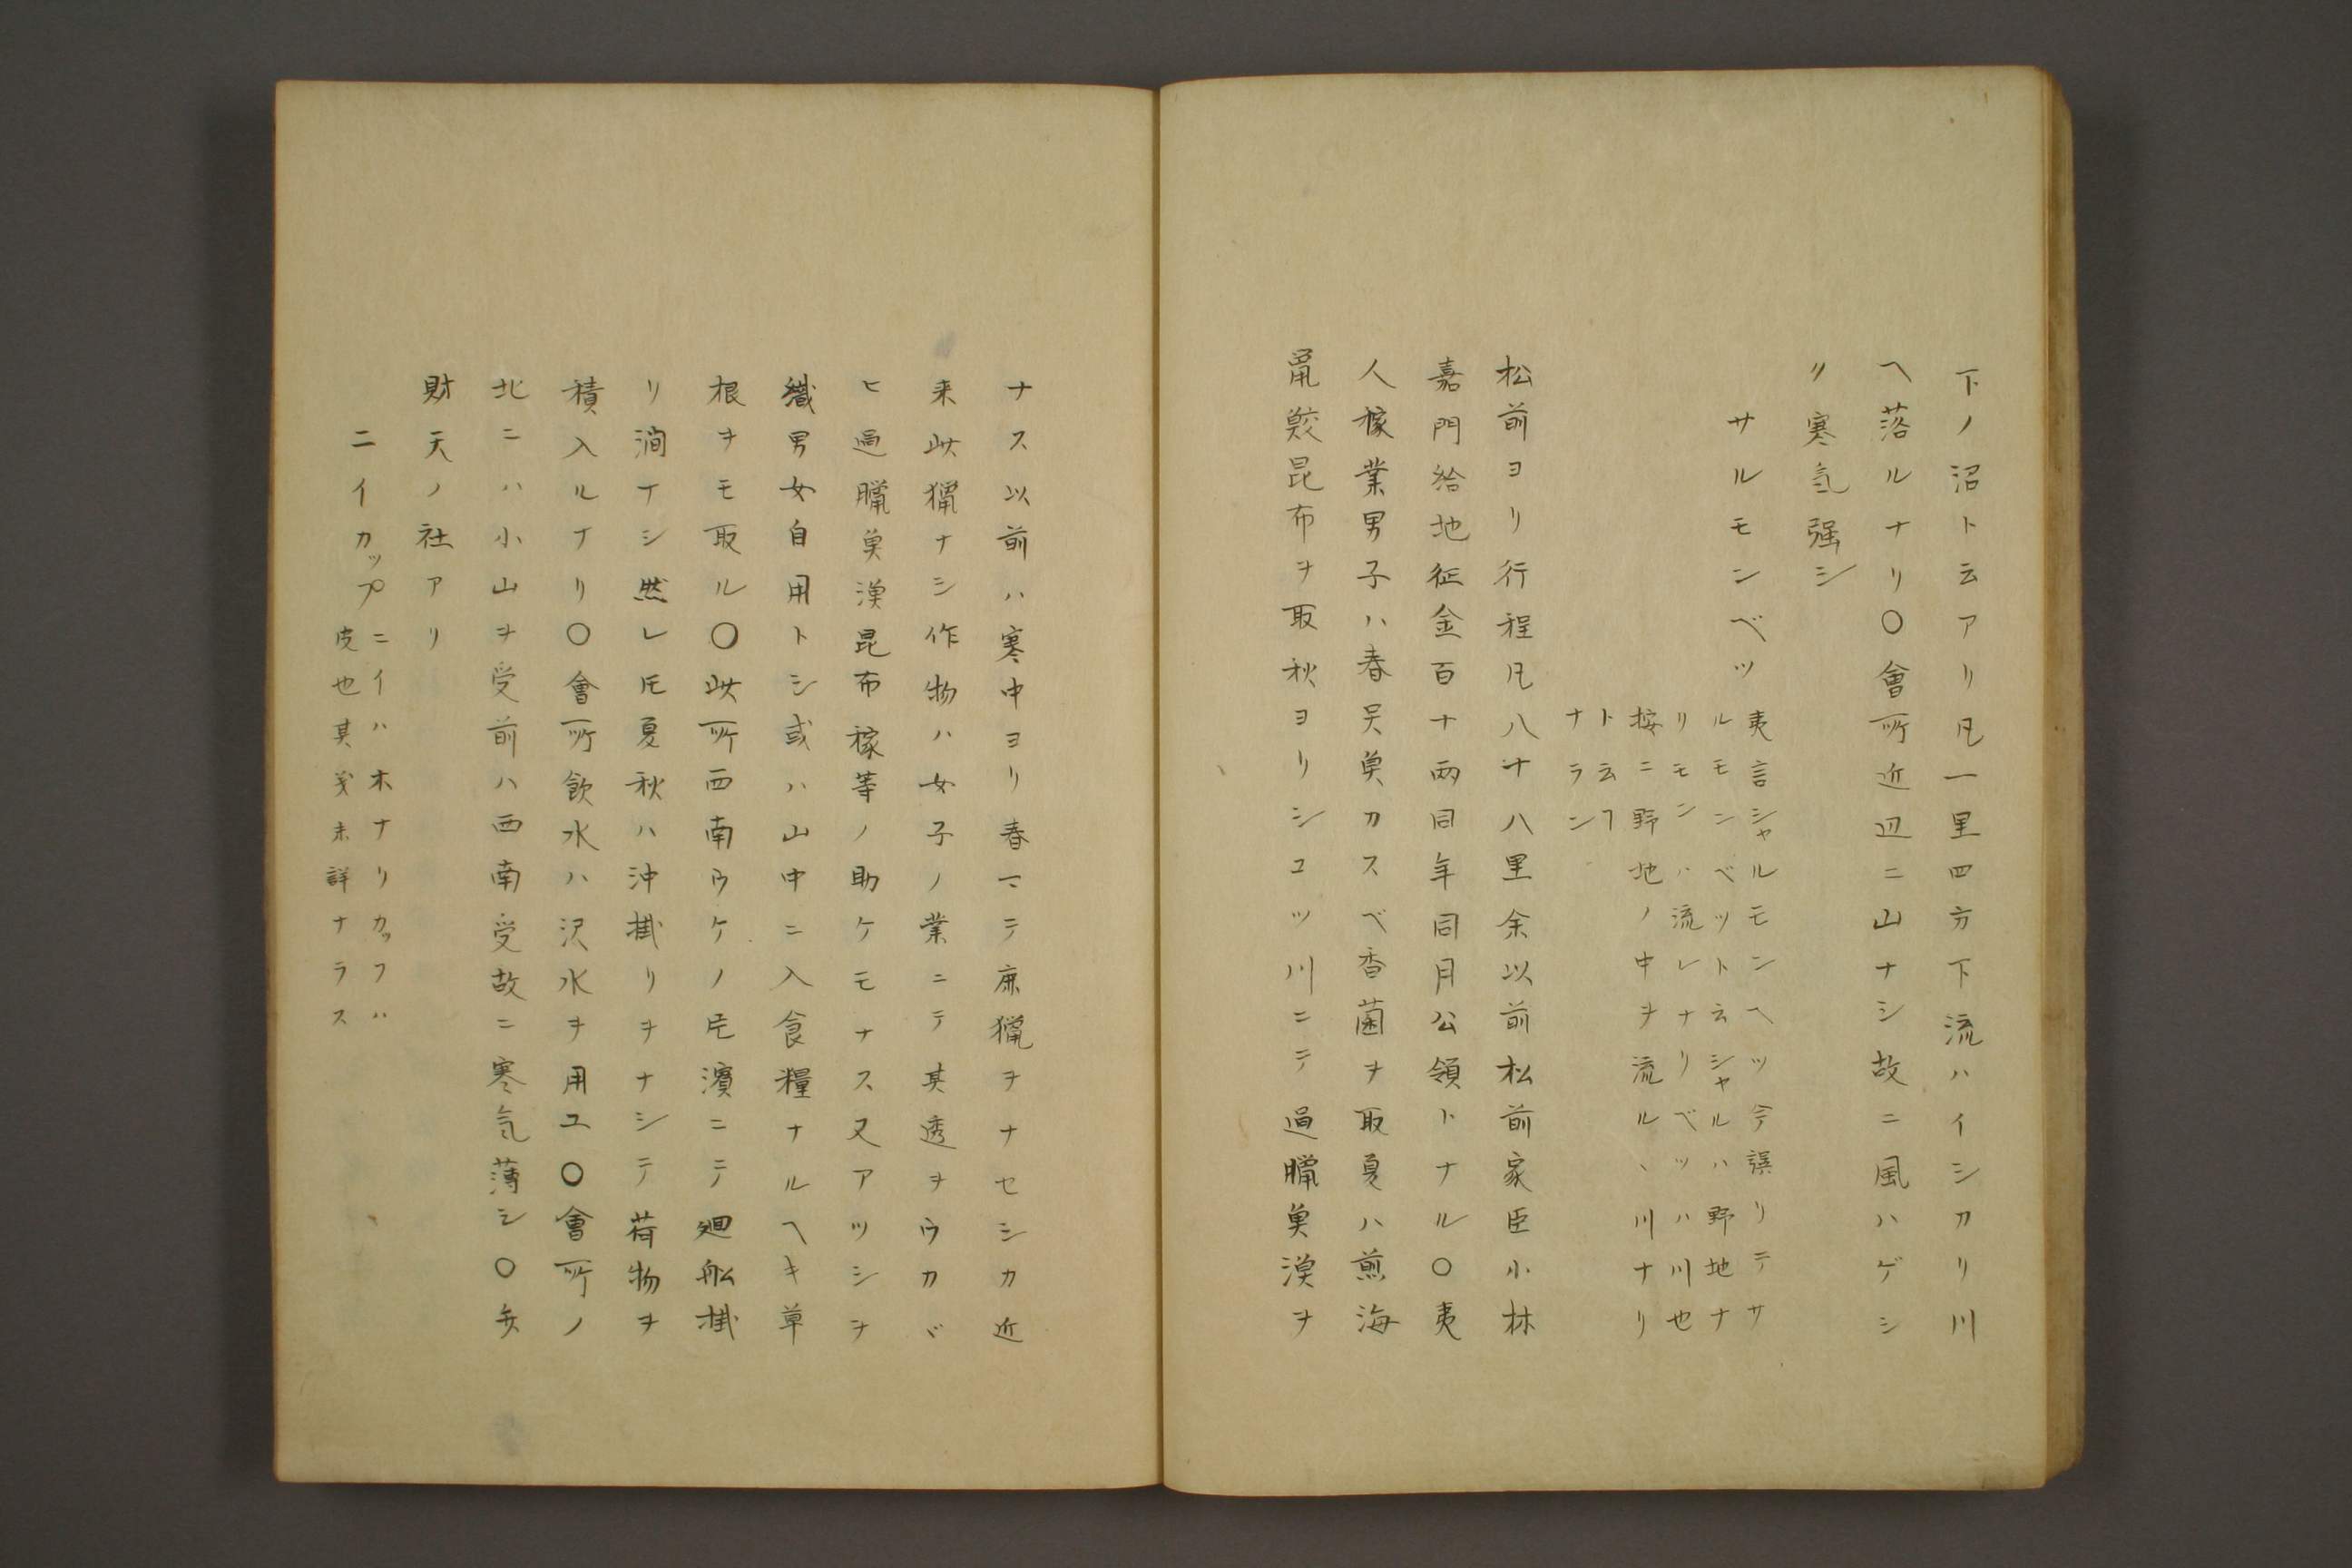 下ノ沼ト云アリ凡一里四方下流ハイシカリ川
ヘ落ルナリ〇會所近辺ニ山ナシ故ニ風ハゲシ
リ寒気强シ
サルモンベツ
夷言シャルモンヘツ今誤リテサ
ルモンベツト云シャルハ野地ナ
リモンハ流レナリベツハ川也
按ニ野地ノ中ヲ流ルヽ川ナリ
ト云フ
ナラン
松前ヨリ行程凡八十八里余以前松前家臣小林
嘉門給地征金百十両同年同月公領トナル〇夷
人稼業男子ハ春ヨリ奠カスベ香菌ヲ取夏ハ煎海
鼠鮫昆布ヲ取秋ヨリシユツ川ニテ過臘奠漠ヲ
ナス以前ハ寒中ヨリ春マテ鹿獵ヲナセシカ近
来此獵ナシ作物ハ女子ノ業ニテ其透ヲウカヾ
ヒ過臘奠漠昆布稼等ノ助ケモナス又アツシヲ
織男女自用トシ或ハ山中ニ入食糧ナルヘキ草
根ヲモ取ル〇此所西南ウケノ㞍濱ニテ廻船掛
リ澗ナシ然レ𪜈夏秋ハ沖掛リヲナシテ荷物ヲ
積入ルナリ〇會所飲水ハ沢水ヲ用ユ〇會所ノ
北ニハ小山ヲ受前ハ西南受故ニ寒気薄シ〇弁
財天ノ社アリ
ニイカップ
ニイハ木ナリカッフハ
皮也其義未詳ナラス